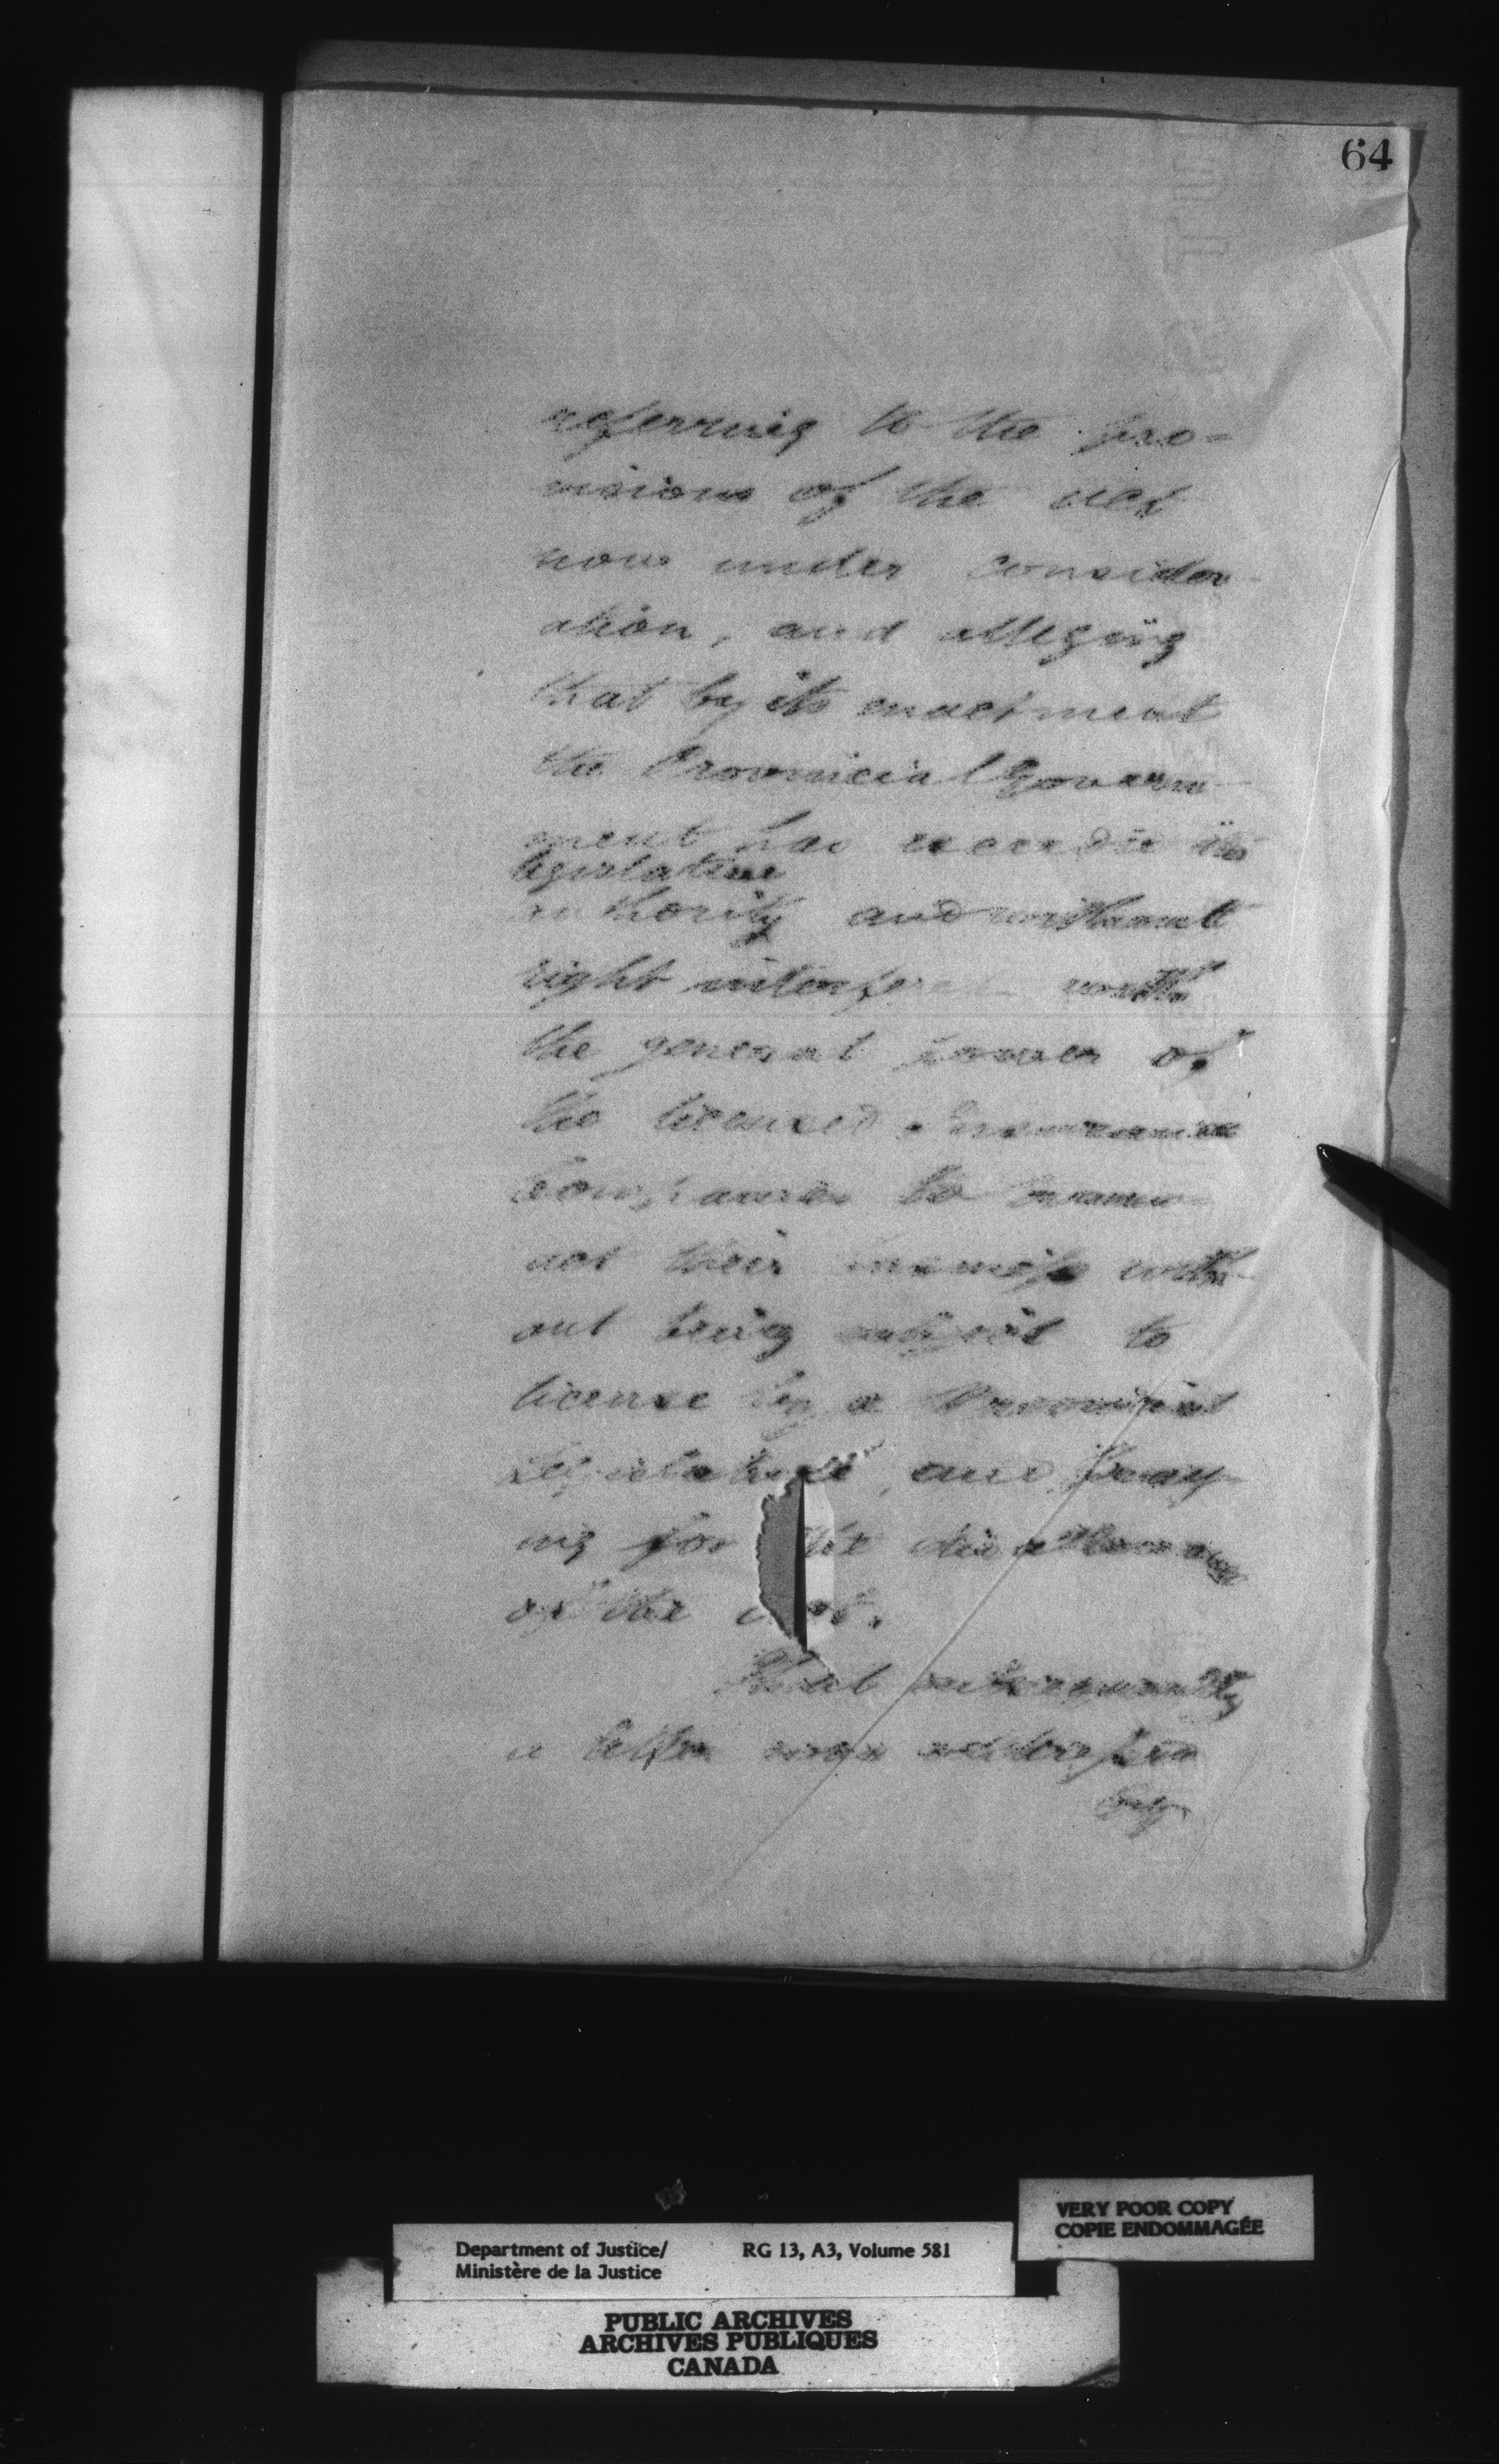 64
referring to the pro-
visions of the act
now under consider-
ation, and alleging
that by its enactment
the Provincial Govern-
ment has exceeded its
legislative
authority and without
right interfered with
the general power of
the licensed Insurance
Companies to
not their business with-
out being subject to
license by a Provincial
Legislature, and pray-
ing for the disallowance
of the act.
That subsequently
a letter was addressed
by
VERY POOR COPY
COPIE ENDOMMAGÉE
Department of Justice/ RG 13, A3, Volume 581
Ministère de la Justice
PUBLIC ARCHIVES
ARCHIVES PUBLIQUES
CANADA